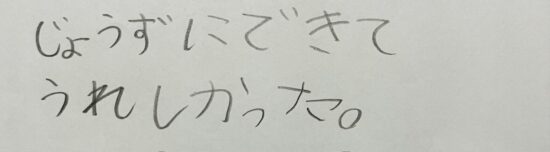 じょうずにできて
うれしかった。